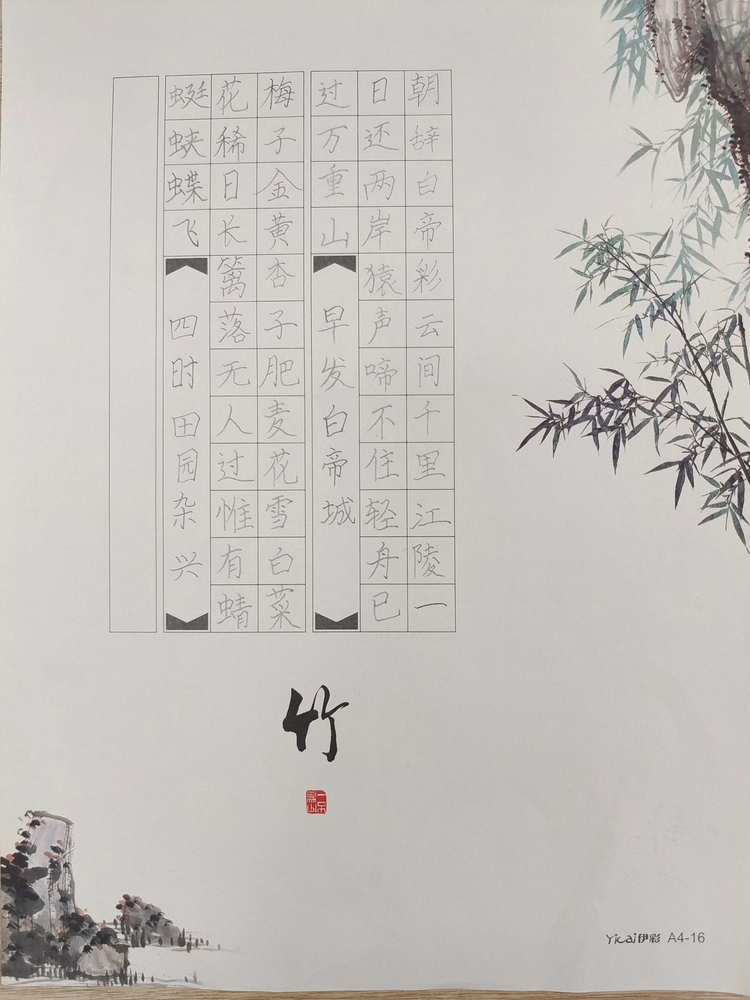 朝辞白帝彩云间千里江陵一
日还两岸猿声啼不住轻舟已
过万重山
早发白帝城
梅子金黄杏子肥麦花雪白菜
花稀日长篱落无人过惟有蜻
蜓蛱蝶飞
四时田园杂兴
竹
Yicai伊彩 A4-16